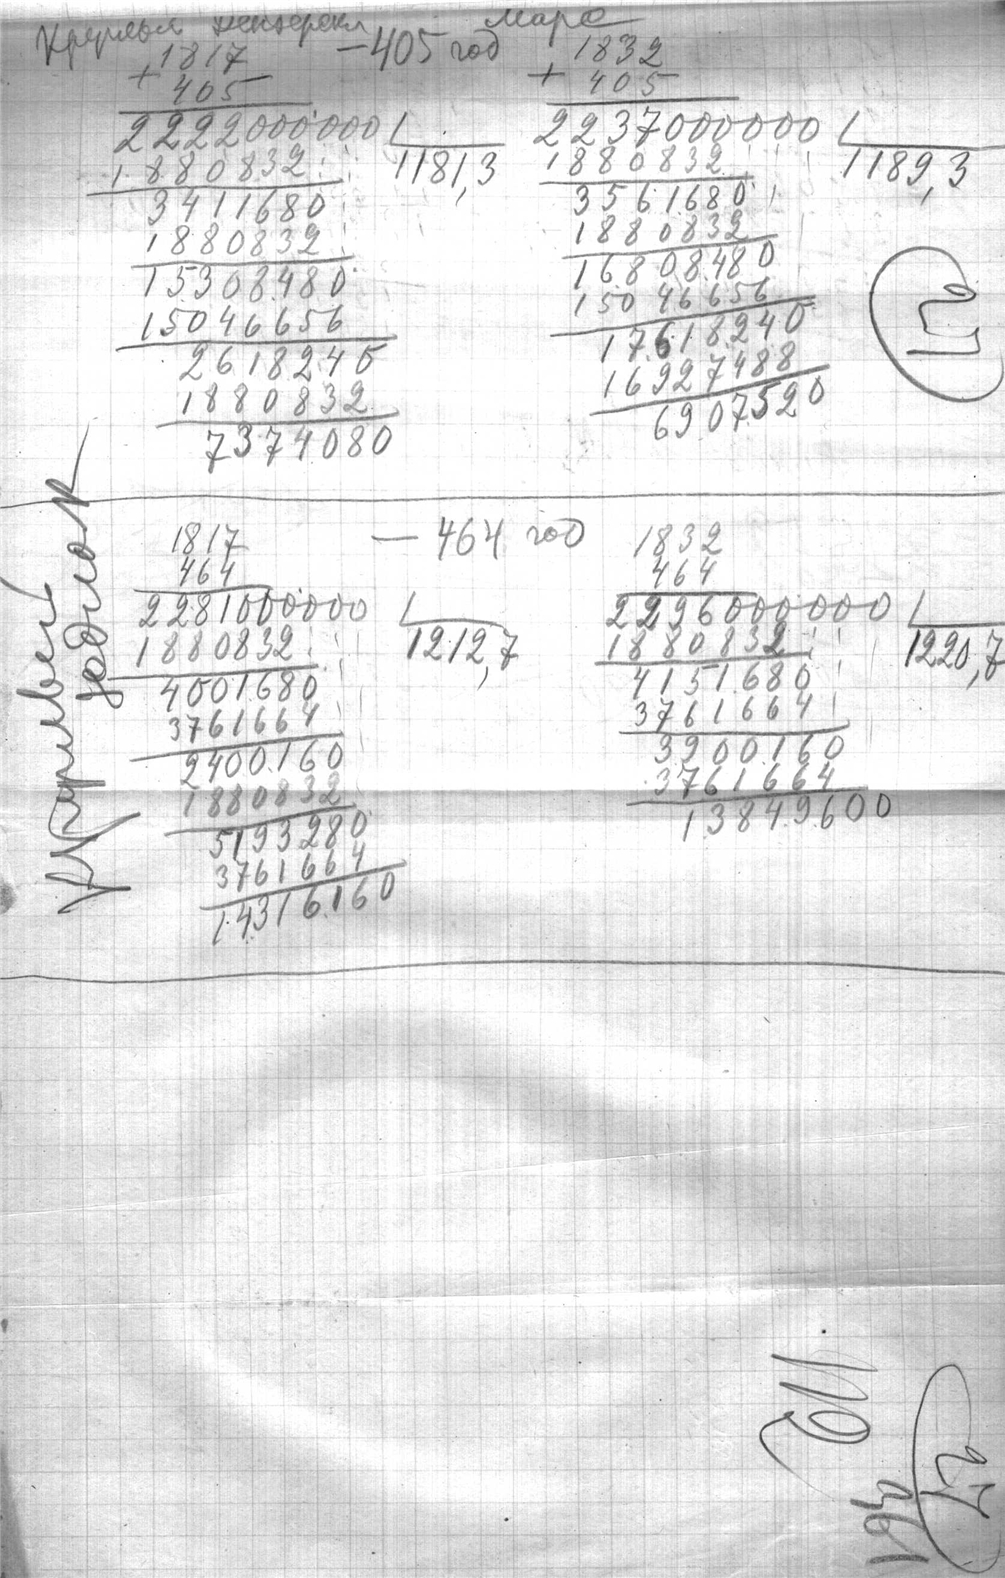 Марс
— 405 год
1817
+ 405
2222000000
1880832
1181,3
3411680
1880832
15308480
15046656
2618240
1880832
7374080
1832
+ 405
2237000000
1880832
1189,3
3561680
1880832
16808480
15046656
17618240
16927488
6907520
— 464 год
1817
464
2281000000
1880832
1212,7
4001680
3761664
2400160
1880832
5193280
3761664
14316160
1832
464
2296000000
1880832
1220,7
4151680
3761664
3900160
3761664
13849600
27